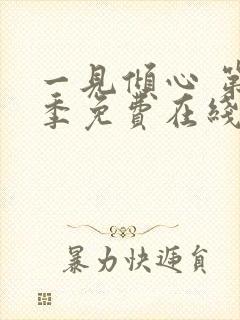 一見傾心 第
季免費在綫
暴力快遞員